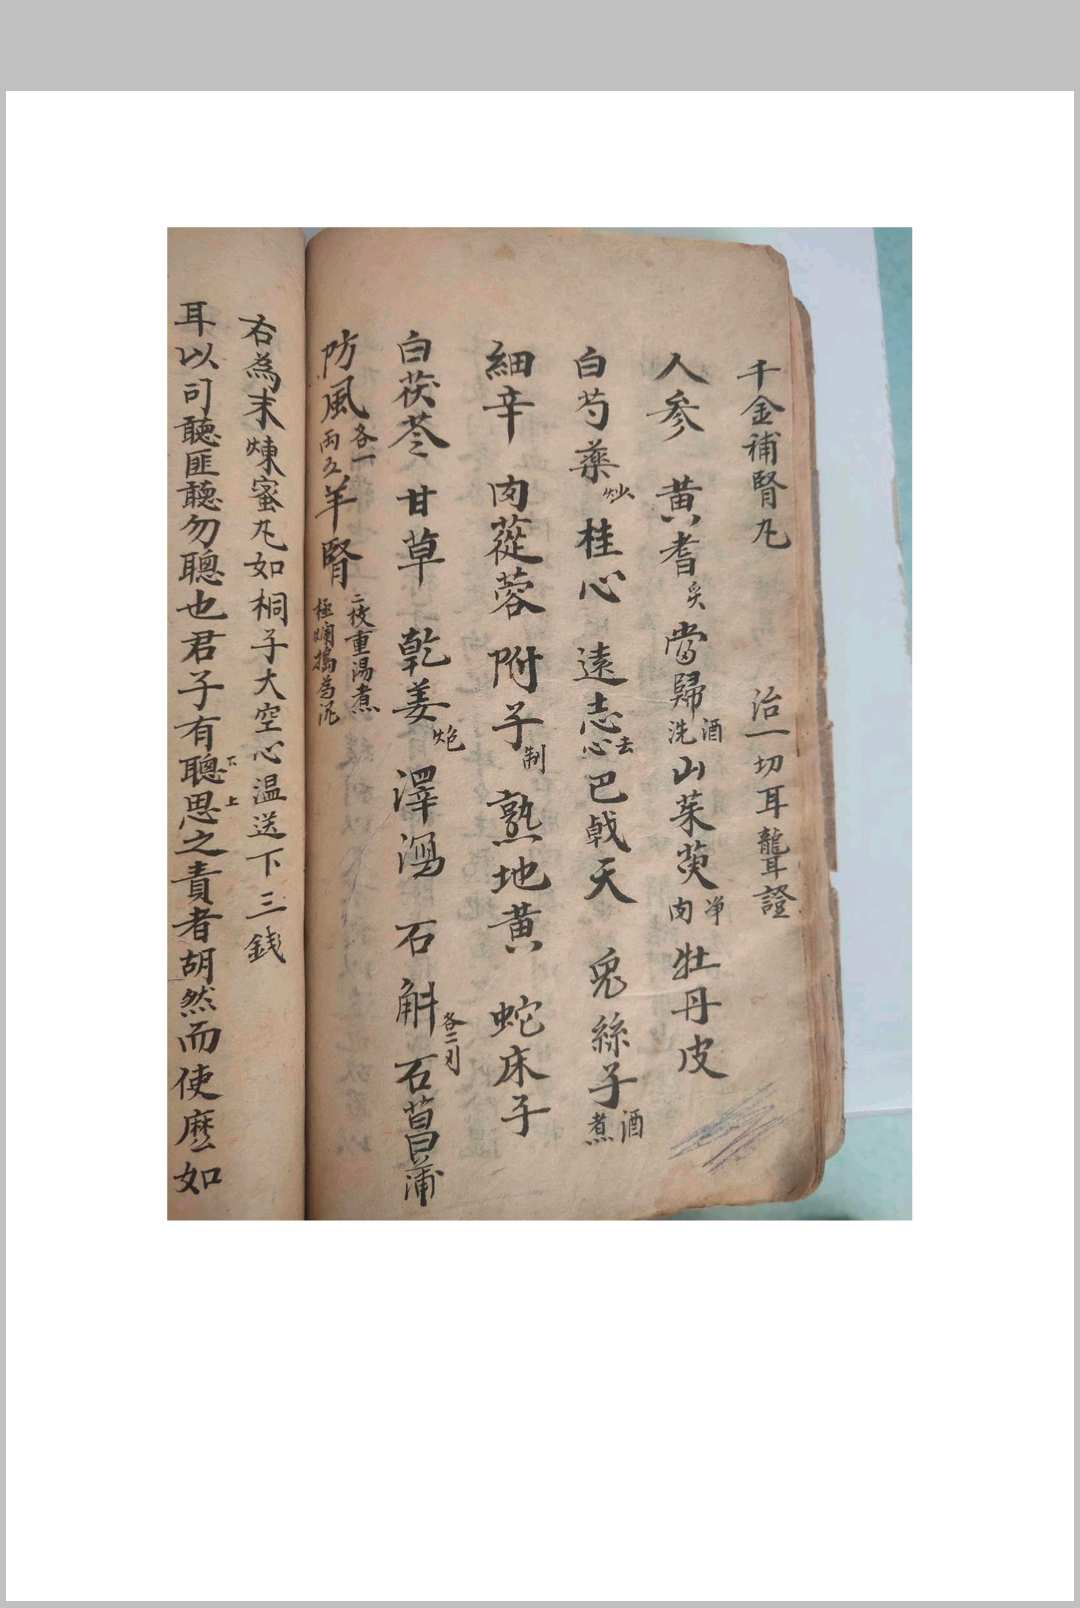 千金補腎丸 治一切耳聾證
人參 黃耆炙 當歸酒洗 山茱萸净肉 牡丹皮
白芍藥炒 桂心 遠志去心 巴戟天 兎絲子酒煮
細辛 肉蓯蓉 附子制 熟地黃 蛇床子
白茯苓 甘草 乾姜炮 澤瀉 石斛各二刃 石菖蒲
防風各一兩五 羊腎二枚重湯煮極爛搗為泥
右為末煉蜜丸如桐子大空心温送下三錢
耳以司聽匪聽勿聰也君子有聰思之責者胡然而使麽如